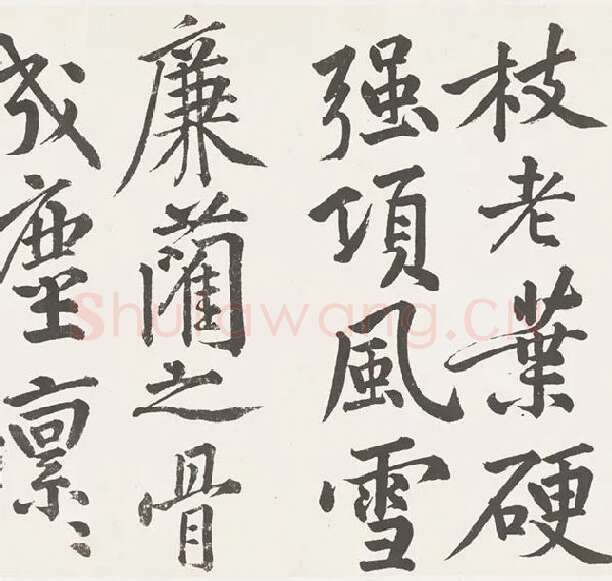 枝老葉硬
强項風雪
廉藺之骨
成塵凛〻
Shufawang.cn